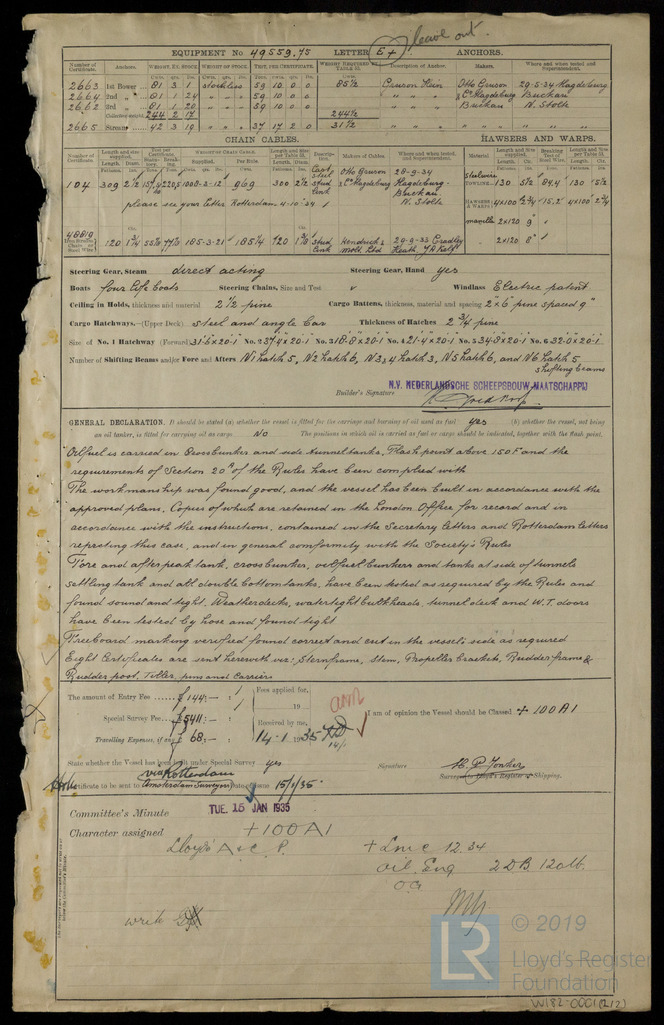 leave out.
EQUIPMENT No 49559.75 LETTER E+ ANCHORS.
Number of Certificate. Anchors. WEIGHT, EX. STOCK WEIGHT OF STOCK TEST, PER CERTIFICATE. WEIGHT REQUIRED BY TABLE 31. Description of Anchor. Makers. Where and when tested and Superintendent.
2663 1st Bower 81 3 1 stockless 59 10 0 0 85½ Gruson Hein Otto Gruson 29-5-34 Magdeburg
2664 2nd " 81 1 24 " " 59 10 0 0 " " & Co Magdeburg Buckau
2662 3rd " 81 1 20 " " 59 10 0 0 " " Buckau N. Stolte
Collective weight 244 2 17 244½
2665 Stream 42 3 19 " " 37 17 2 0 31½ " " " " " "
CHAIN CABLES. HAWSERS AND WARPS.
104 309 2½ 300 2½ stud link Otto Gruson 28-9-34
& Co Magdeburg Magdeburg-
Buckau
N. Stolte
please see your letter Rotterdam 4-10-34
TOWLINE 130 5½ 84.4 130 5½
HAWSERS & WARPS 4x100 2¾ 15.2 4x100 2¾
manilla 2x120 9"
48819 120 1¾ 185-3-21 185¼ 120 1⅜ stud link Kendrick & Mole Ltd 29-9-33 Cradley Heath
" 2x120 8"
Steering Gear, Steam direct acting Steering Gear, Hand yes
Boats four life boats Steering Chains, Size and Test ✓ Windlass Electric patent
Ceiling in Holds, thickness and material 2½ pine Cargo Battens, thickness, material and spacing 2"x6" pine spaced 9"
Cargo Hatchways.—(Upper Deck) steel and angle bar Thickness of Hatches 2¾ pine
Size of No. 1 Hatchway (Forward) 31-6"x20-1 No. 2 37-4"x20-1 No. 3 18-8"x20-1 No. 4 21-4"x20-1 No. 5 34-8"x20-1 No. 6 32-0"x20-1
Number of Shifting Beams and/or Fore and Afters N1 hatch 5, N2 hatch 6, N3x4 hatch 3, N5 hatch 6, and N6 hatch 5
shifting beams
N.V. NEDERLANDSCHE SCHEEPSBOUW MAATSCHAPPIJ
Builder's Signature
GENERAL DECLARATION. It should be stated (a) whether the vessel is fitted for the carriage and burning of oil used as fuel yes (b) whether the vessel, not being
an oil tanker, is fitted for carrying oil as cargo No The positions in which oil is carried as fuel or cargo should be indicated, together with the flash point.
Oilfuel is carried in Crossbunker and side tunnel tanks, Flash point above 150 F. and the
requirements of Section 20" of the Rules have been complied with
The workmanship was found good, and the vessel has been built in accordance with the
approved plans, Copies of which are retained in the London Office for record and in
accordance with the instructions, contained in the Secretary letters and Rotterdam letters
repecting this case, and in general comformity with the Society's Rules
Fore and after peak tank, cross bunker, oilfuel bunkers and tanks at side of tunnels
settling tank and all double bottom tanks, have been tested as required by the Rules and
found sound and tight. Weatherdecks, watertight bulkheads, tunnel deck and W.T. doors
have been tested by hose and found tight
Freeboard marking verified found correct and cut in the vessel's side as required
Eight Certificates are sent herewith viz: Sternframe, Stem, Propeller brackets, Rudder frame &
Rudder post, Tiller, pins and Carrier
The amount of Entry Fee £ 144:- Fees applied for,
19
I am of opinion the Vessel should be Classed + 100A1
Special Survey Fee £ 5411:- Received by me,
Travelling Expenses, if any £ 68:- 14-1 1935
State whether the Vessel has been built under Special Survey yes Signature H. P. Jonker
Surveyor to Lloyd's Register of Shipping.
via Rotterdam
Certificate to be sent to Amsterdam Surveyors Date of issue 15/1/35
Committee's Minute TUE. 15 JAN 1935
Character assigned +100A1
Lloyd's A & C. P. + Lmc 12.34
Oil. Eng 2DB 120lb.
OG
write
© 2019
LR Lloyd's Register
Foundation
W182-0001(2/2)